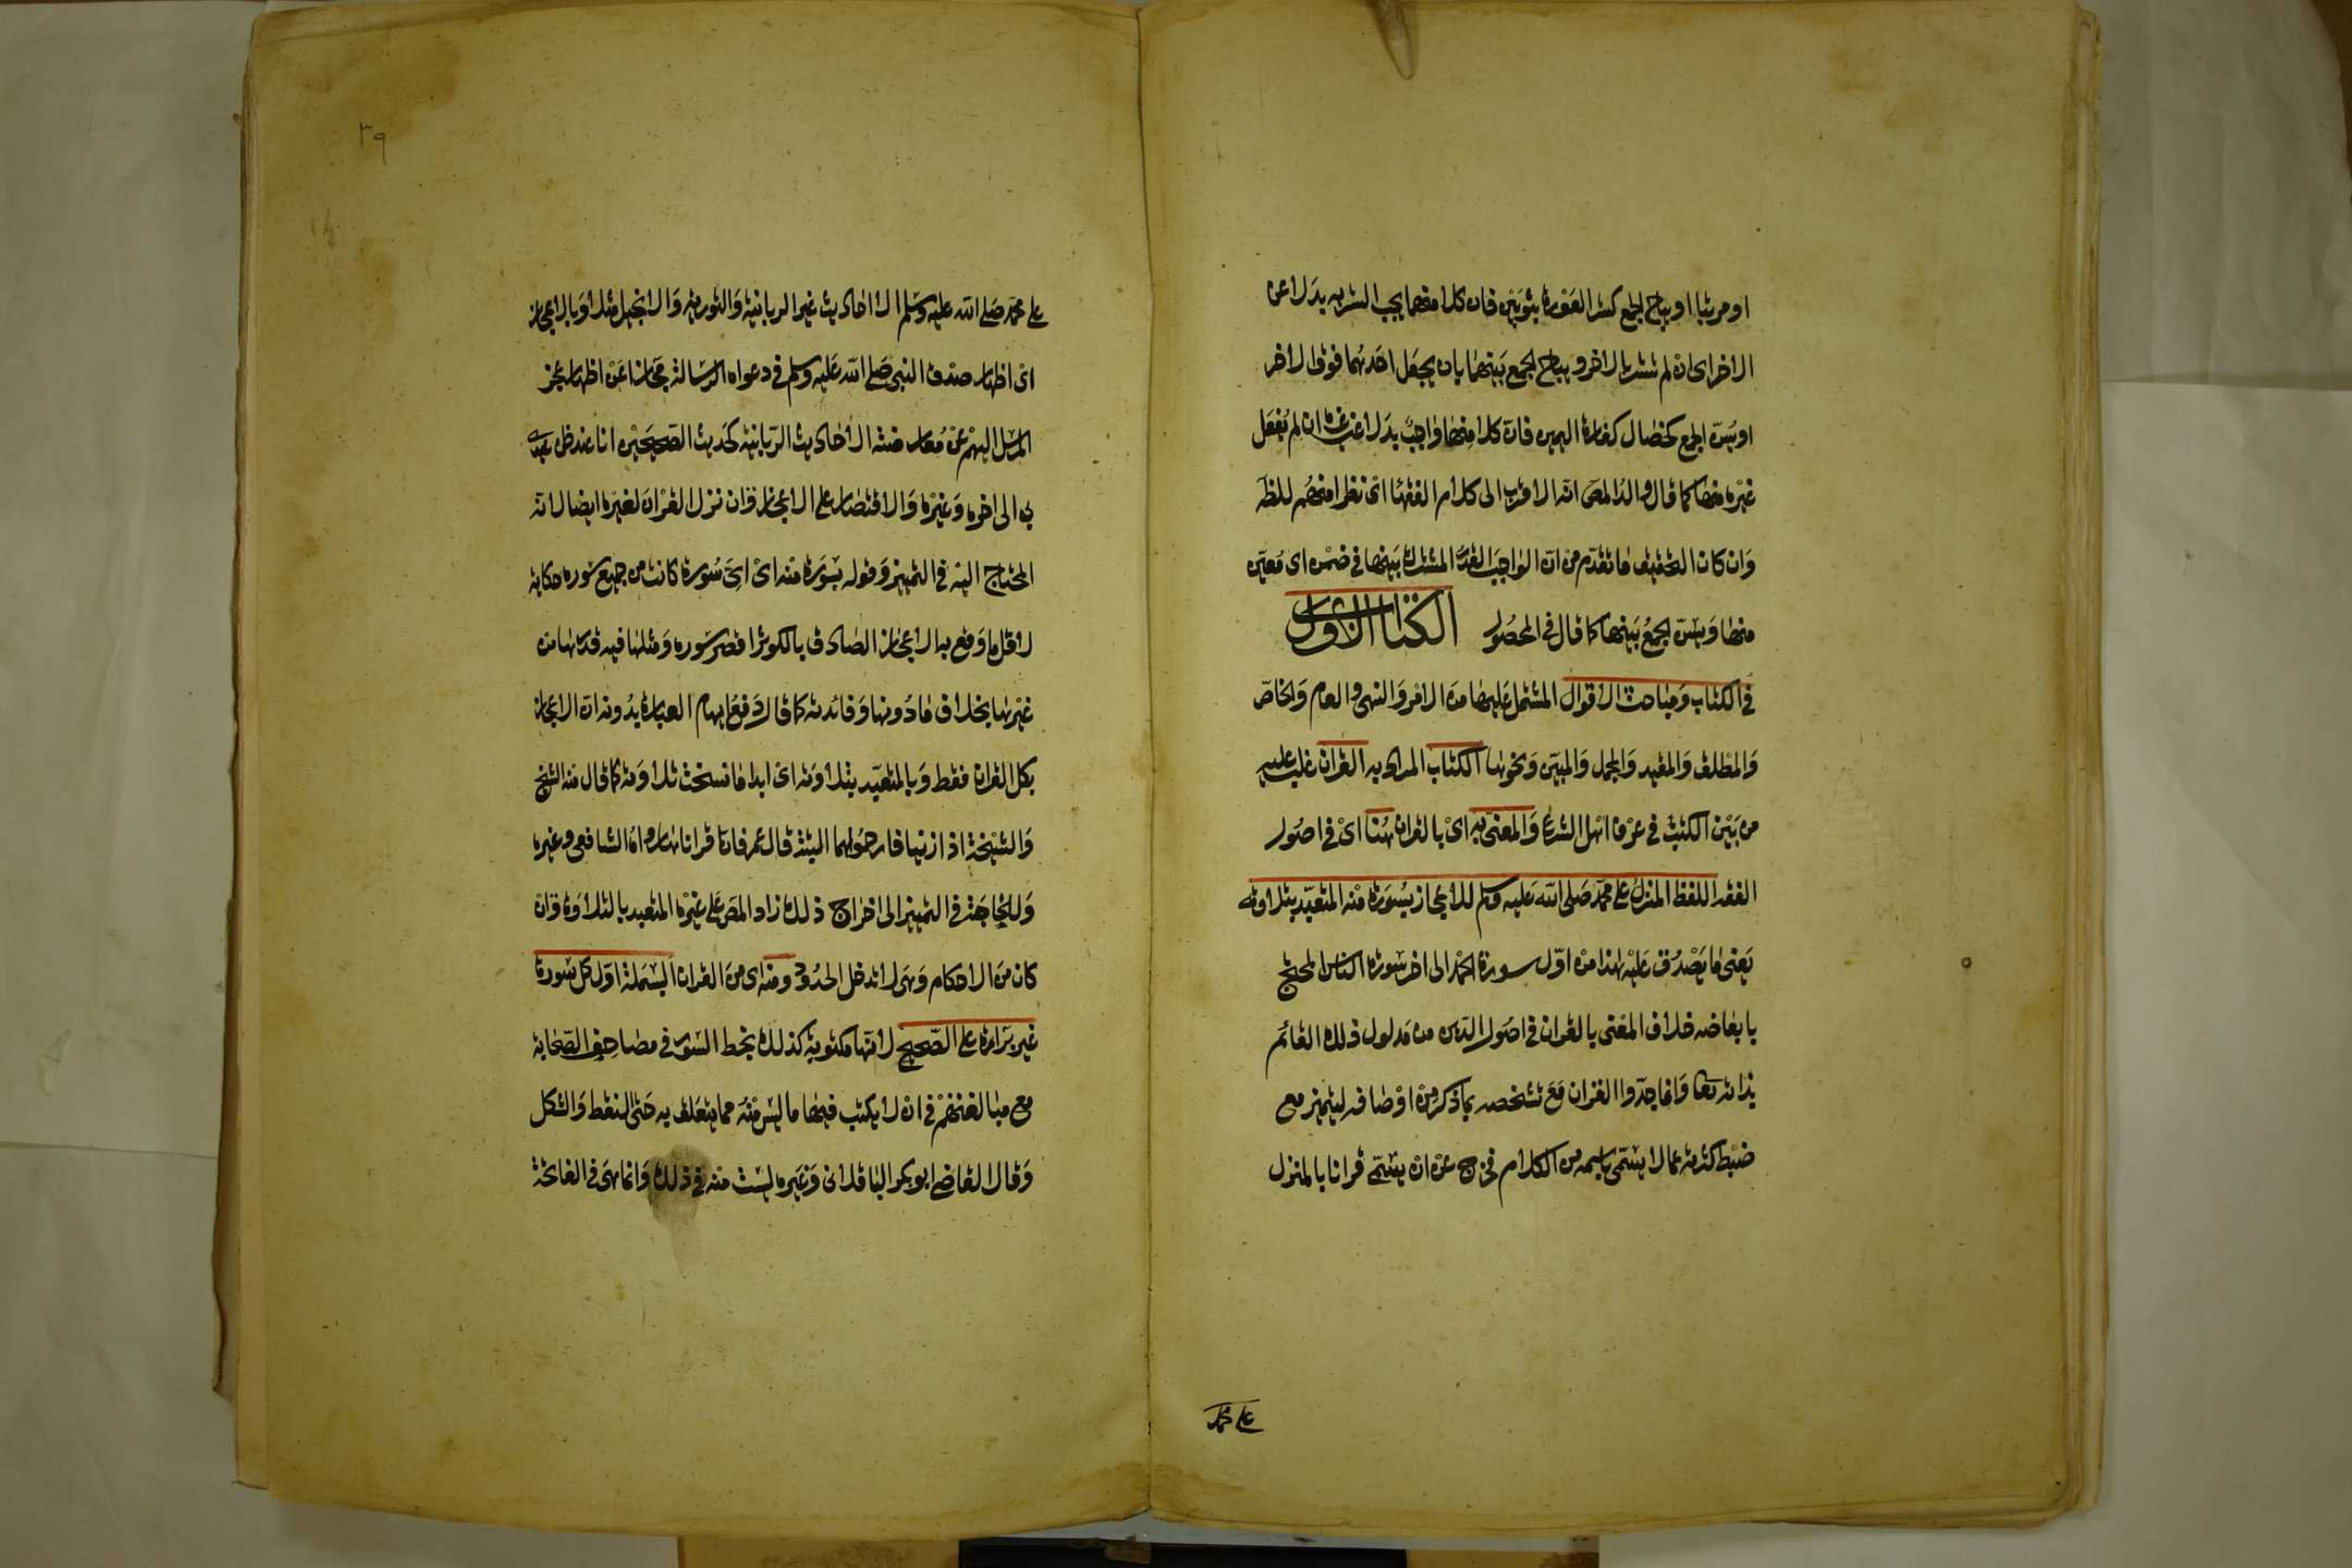 او مرتبا او يباح الجمع كستر العورة بثوبين فان كلا منهما يجب الستر به بدلا عن
الاخر اى ان لم تستر بالاخر ويباح الجمع بينهما بان يجعل احدهما فوق الاخر
او يسن الجمع كخصال كفارة اليمين فان كلا منها واجب بدلا عن غيره ان لم يفعل
غيره منها كما قال والد المص انه الاقرب الى كلام الفقها اى نظرا منهم للظه
وان كان التحقيق ما تقدم من ان الواجب القدر المشترك بينها في ضمن اى معين
منها ويسن الجمع بينها كما قال في المحصول الكتاب الاول
في الكتاب ومباحث الاقوال المشتمل عليها من الامر والنهى والعام والخاص
والمطلق والمقيد والمجمل والمبين ونحوها الكتاب المراد به القران غلب عليه
من بين الكتب في عرف اهل الشرع والمعنى به اى بالقران هنا اى في اصول
الفقه اللفظ المنزل على محمد صلى الله عليه وسلم للاعجاز بسورة منه المتعبد بتلاوته
يعنى ما يصدق عليه هذا من اول سورة الحمد الى اخر سورة الناس المحتج
بابعاضه خلاف المعنى بالقران في اصول الدين من مدلول ذلك القائم
بذاته تعا وانما حدوا القران مع تشخصه بما ذكر من اوصافه ليتميز مع
ضبط كثرته عما لا يسمى باسمه من الكلام فخرج عن ان يسمى قرانا بالمنزل
على محمد
٣٩
على محمد صلى الله عليه وسلم الاحاديث غير الربانية والتورية والانجيل مثلا وبالاعجاز
اى اظهار صدق النبى صلى الله عليه وسلم في دعواه الرسالة مجازا عن اظهار عجز
المرسل اليهم عن معارضته الاحاديث الربانية كحديث الصحيحين انا عند ظن عبدى
بى الى اخره وغيره والاقتصار على الاعجاز وان نزل القران لغيره ايضا لانه
المحتاج اليه في التمييز وقوله بسورة منه اى اى سورة كانت من جميع سوره حكاية
لاقل ما وقع به الاعجاز الصادق بالكوثر اقصر سوره ومثلها فيه قدرها من
غيرها بخلاف ما دونها وفائدته كما قال دفع ايهام العبارة بدونه ان الاعجاز
بكل القران فقط وبالمتعبد بتلاوته اى ابدا ما نسخت تلاوته كما قال منه الشيخ
والشيخة اذا زنيا فارجموهما البتة قال عمر فانا قراناها رواه الشافعى وغيره
وللحاجة في التمييز الى اخراج ذلك زاد المص على غيره المتعبد بالتلاوة وان
كان من الاحكام وهى لا تدخل الحدود ومنه اى من القران البسملة اول كل سورة
غير براءة على الصحيح لانها مكتوبة كذلك بخط السور في مصاحف الصحابة
مع مبالغتهم في ان لا يكتب فيها ما ليس منه مما يتعلق به حتى النقط والشكل
وقال القاضى ابو بكر الباقلانى وغيره ليست منه في ذلك وانما هى في الفاتحة